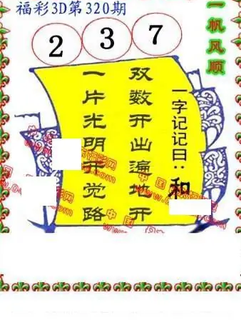 福彩3D第320期
一帆风顺
2 3 7
一字记记曰：和
双数开出遍地开
一片光明开觉路